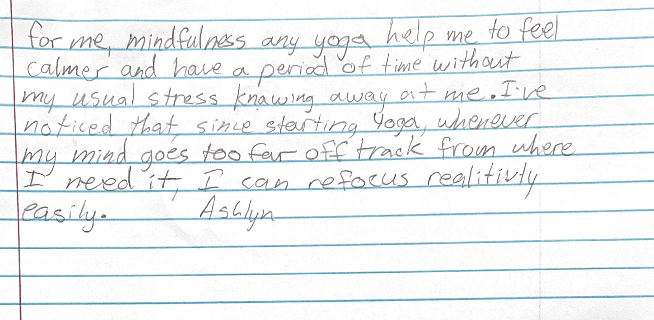 for me, mindfulness any yoga help me to feel
calmer and have a period of time without
my usual stress knawing away at me. I've
noticed that, since starting Yoga, whenever
my mind goes too far off track from where
I need it, I can refocus realitivly
easily. Ashlyn